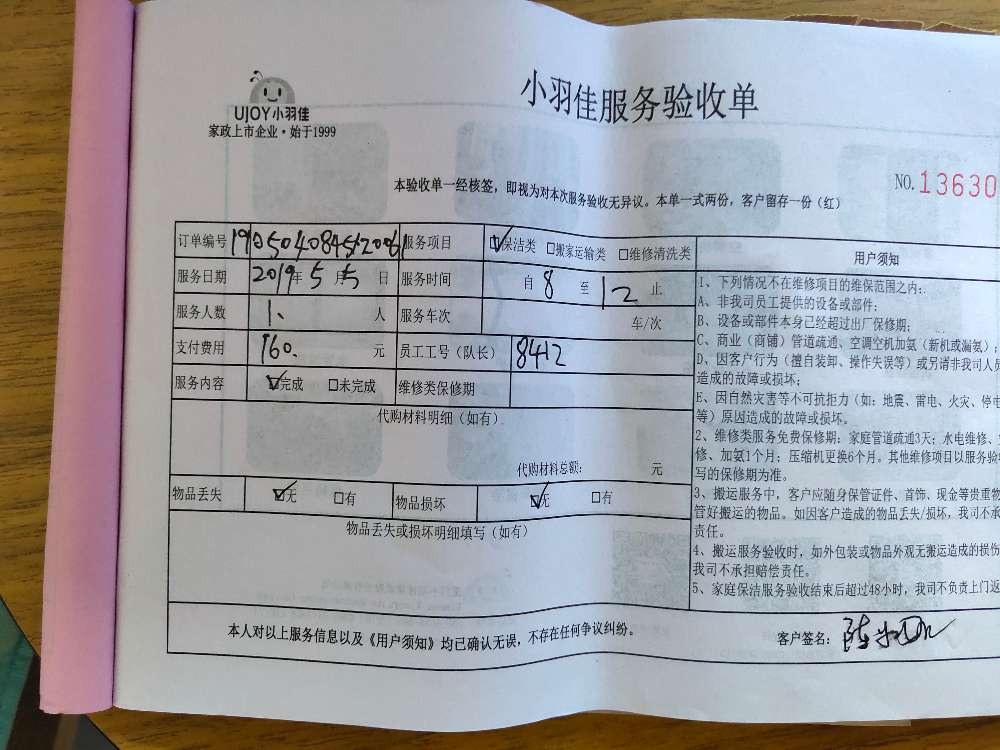 UJOY小羽佳
家政上市企业·始于1999
小羽佳服务验收单
本验收单一经核签，即视为对本次服务验收无异议。本单一式两份，客户留存一份（红）
NO. 13630
订单编号 服务项目 ☑保洁类 □搬家运输类 □维修清洗类
服务日期 2019年5月5日 服务时间 自 8 至 12 止
服务人数 1、 人 服务车次 车/次
支付费用 160. 元 员工工号（队长） 8412
服务内容 ☑完成 □未完成 维修类保修期
代购材料明细（如有）
代购材料总额： 元
物品丢失 ☑无 □有 物品损坏 ☑无 □有
物品丢失或损坏明细填写（如有）
用户须知
1、下列情况不在维修项目的维保范围之内：
A、非我司员工提供的设备或部件；
B、设备或部件本身已经超过出厂保修期；
C、商业（商铺）管道疏通、空调空机加氨（新机或漏氨）；
D、因客户行为（擅自装卸、操作失误等）或另请非我司人员
造成的故障或损坏；
E、因自然灾害等不可抗拒力（如：地震、雷电、火灾、停电
等）原因造成的故障或损坏。
2、维修类服务免费保修期：家庭管道疏通3天；水电维修、
修、加氨1个月；压缩机更换6个月。其他维修项目以服务验
写的保修期为准。
3、搬运服务中，客户应随身保管证件、首饰、现金等贵重物
管好搬运的物品。如因客户造成的物品丢失/损坏，我司不承
责任。
4、搬运服务验收时，如外包装或物品外观无搬运造成的损伤
我司不承担赔偿责任。
5、家庭保洁服务验收结束后超过48小时，我司不负责上门返
本人对以上服务信息以及《用户须知》均已确认无误，不存在任何争议纠纷。
客户签名：